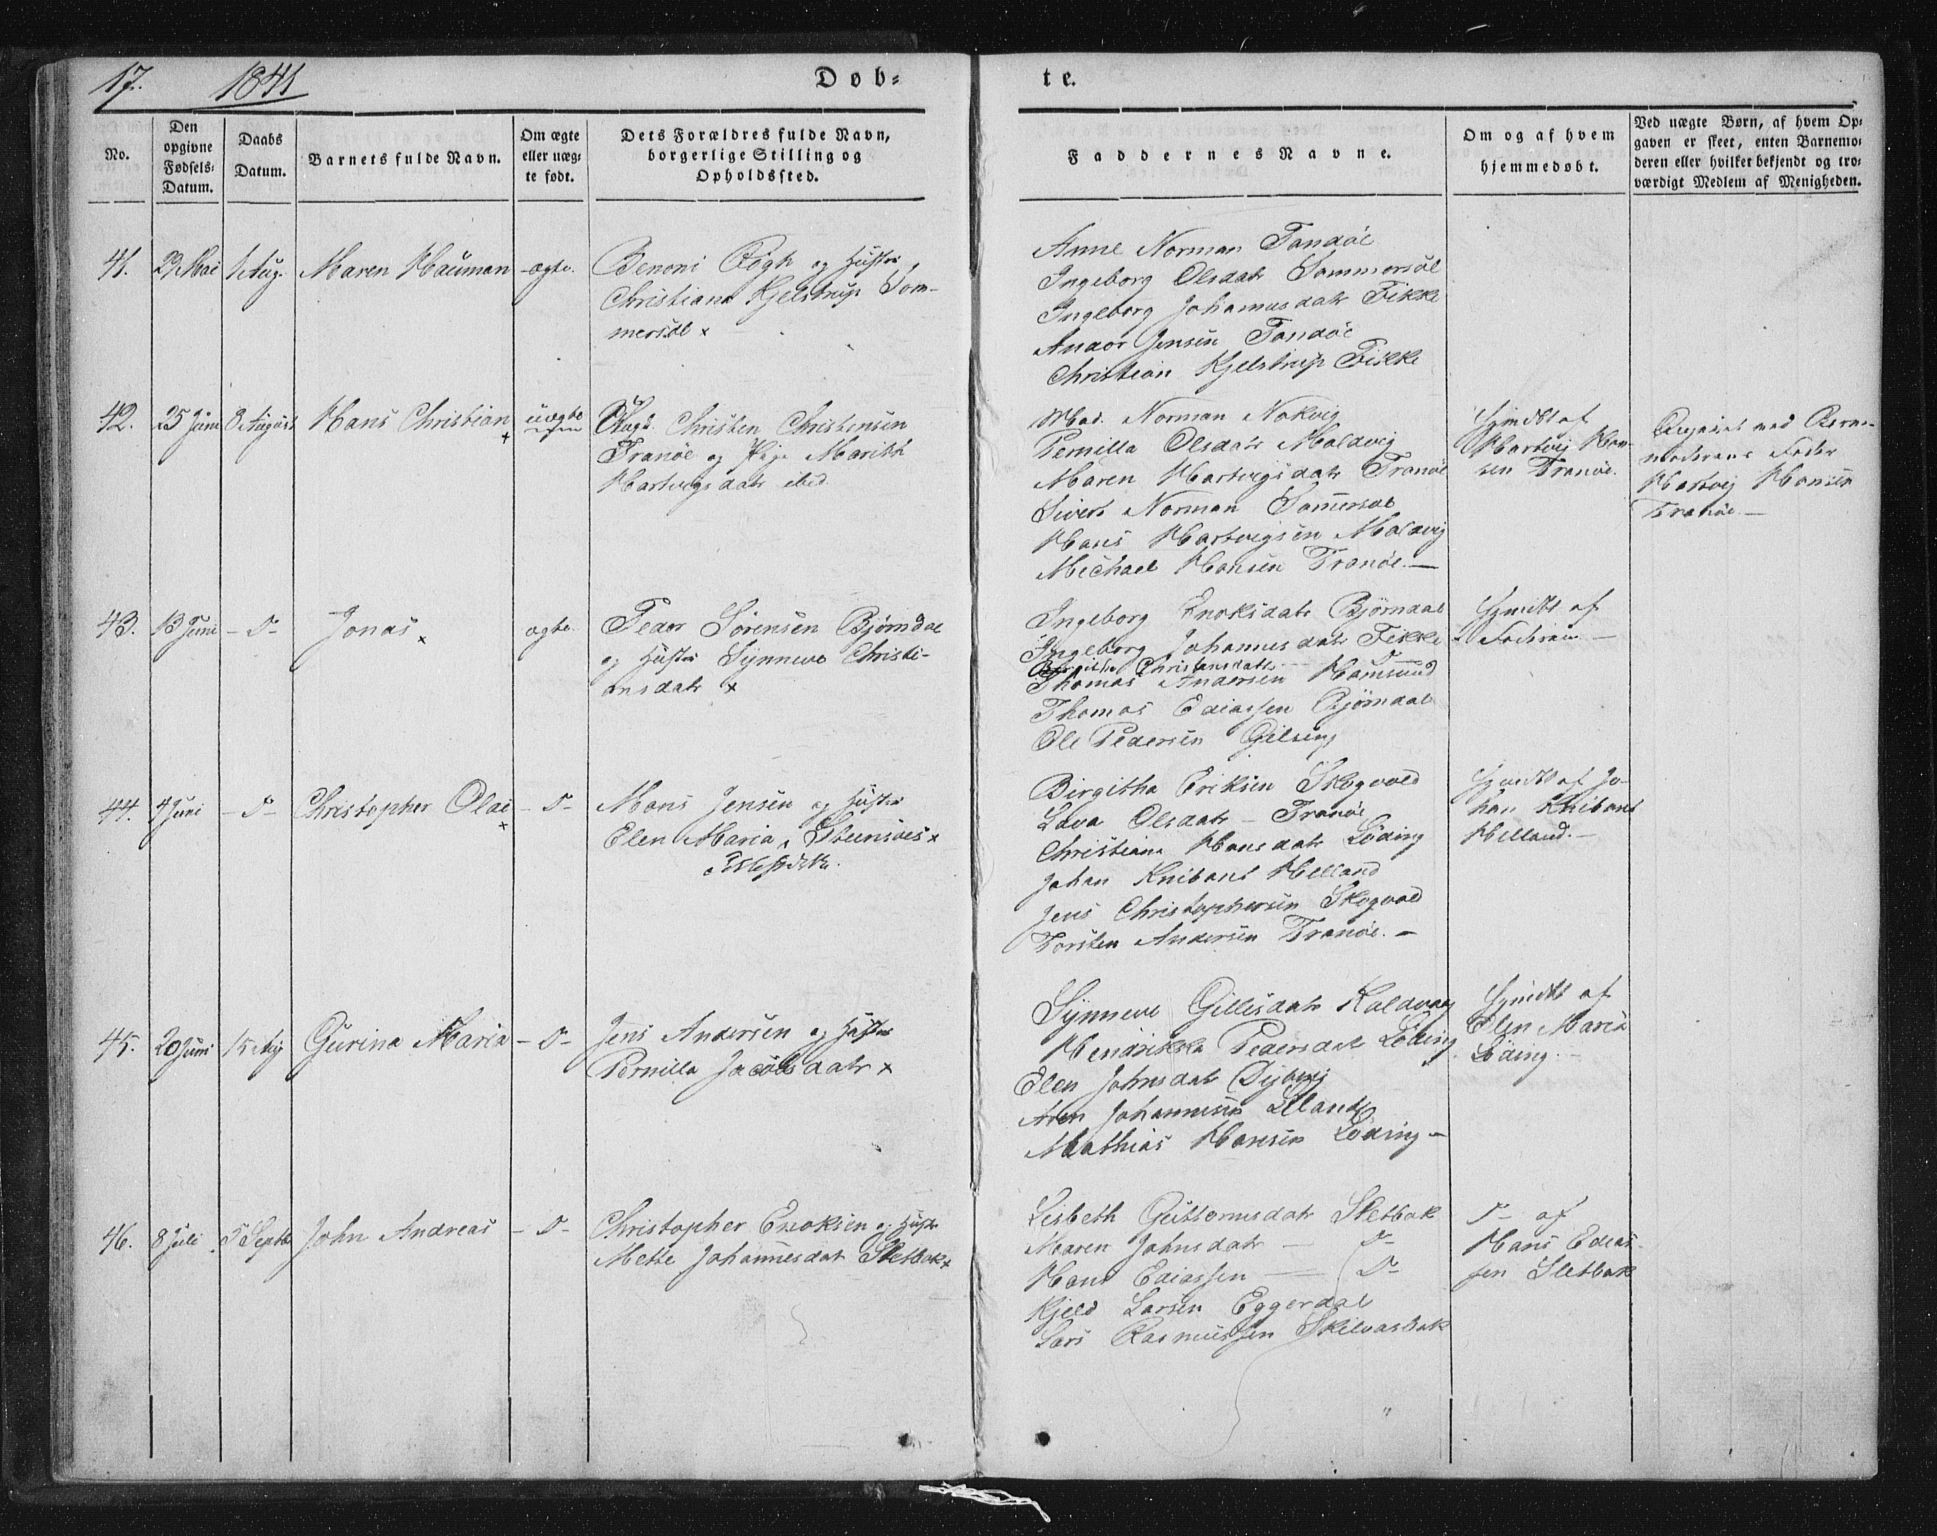 17. 1841 Døb- te.
No.
Den opgivne Fødsels-Datum.
Daabs Datum.
Barnets fulde Navn.
Om ægte eller uægte født.
Dets Forældres fulde Navn, borgerlige Stilling og Opholdssted.
Faddernes Navne.
Om og af hvem hjemmedøbt.
Ved uægte Børn, af hvem Opgaven er skeet, enten Barnemoderen eller hvilket bekjendt og troværdigt Medlem af Menigheden.
41. 29 Mai 1 Aug. Maren Hauman ægte.
Benoni Røgh og Hustru
Christiana Kjelstrup Som-
mersel x
Anne Norman Tandøe
Ingeborg Olsdatr Sommersel
Ingeborg Johannesdatr Fikke
Andor Jensen Tandøe
Christian Kjelstrup Fikke
42. 25 Juni 8 August Hans Christian x uægte
Ungk. Christen Christensen
Tranøe og Pige Marith
Hartvigsdatr ibid
Mad. Norman Nakvig
Pernilla Olsdatr Maldvig
Maren Hartvigsdatr Tranøe
Sivert Norman Sommersel
Hans Hartvigsen Maldvig
Michael Hansen Tranøe. —
Hjmdbt af
Hartvig Han-
sen Tranøe.
Barne-
moderens Fader
Hartvig Hansen
Tranøe. —
43. 13 Juni — D — Jonas x ægte.
Peder Sørensen Bjørndal
og Hustru Synneve Christi-
ansdatr x
Ingeborg Enoksdatr Bjørndal
Ingeborg Johannesdatr Fikke
Birgitha Christensdatr — D
Thomas Andersen Hamsund
Thomas Ediassen Bjørndal
Ole Pedersen Gilsing
Hjmdbt af
Faderen —
44. 4 Juni — D — Christopher Olai x — D —
Mons Jensen og Hustru
Elen Maria, Steensoes x
Birgitha Eriksen Skogvold
Lava Olsdatr — Tranøe
Christiana Hansdatr Løding
Johan Knibant Helland
Jens Christophersen Skogvold
Torsten Andersen Tranøe. —
Hjmdbt af Jo-
han Knibant
Helland. —
45. 20 Juni 15 Aug Gurina Maria — D —
Jens Andersen og Hustru
Pernilla Jacobsdatr x
Synneve Gillisdatr Kaldvaag
Hendrikka Pedersdatr Løding
Elen Johnsdatr Dyberg
Aren Johannesen Elland
Mathias Hansen Løding —
Hjmdbt af
Elen Maria
Løding. —
46. 8 Juli 5 Septb John Andreas — D —
Christopher Enoksen og Hustru
Mette Johannesdatr Sletbak x
Lisbeth Guttormsdatr Sletbak
Maren Johnsdatr — D
Hans Ediassen — D —
Kjeld Larsen Eggerdal
Lars Rasmussen Skilvasbak
D — af
Hans Edias-
sen Sletbak